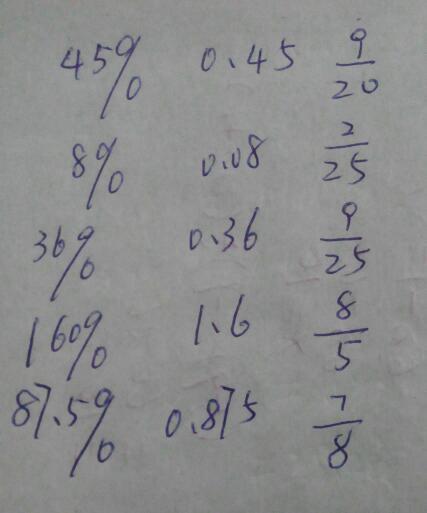 45% 0.45 9/20
8% 0.08 2/25
36% 0.36 9/25
160% 1.6 8/5
87.5% 0.875 7/8